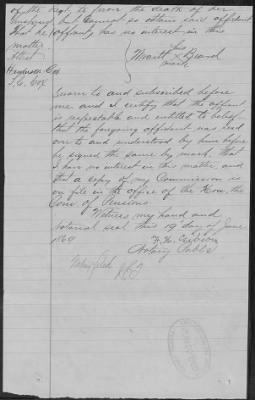 of the Regt, to prove the death of her
husband but cannot so obtain said affidavit
That he, affiant, has no interest in this
matter.
Attest his
Wyatt X Beard
mark
Henderson Cox
T. C. Cox
Sworn to and subscribed before
me and I certify that the affiant
is respectable and entitled to belief
that the foregoing affidavit was read
over to and understood by him before
he signed the same by mark, that
I have no interest in this matter and
that a copy of my Commission is
on file in the office of the Hon. the
Com of Pensions.
Witness my hand and
notarial seal this 19 day of June
1869
Notary Public